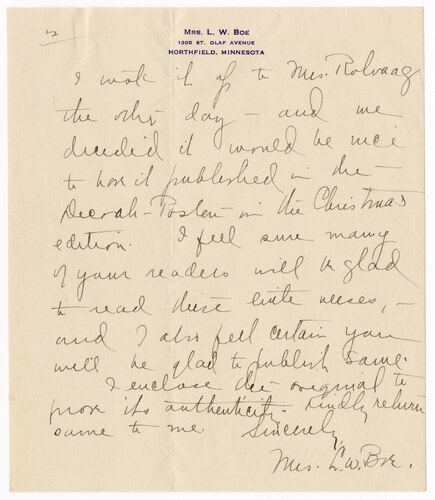 2
MRS. L. W. BOE
1306 ST. OLAF AVENUE
NORTHFIELD, MINNESOTA
I took it up to Mrs. Rolvaag
the other day – and we
decided it would be nice
to have it published in the –
Decorah-Posten – in the Christmas
edition. I feel sure many
of your readers will be glad
to read these little verses, –
and I also feel certain you
will be glad to publish same.
I enclose the original to
prove its authenticity. Kindly return
same to me. Sincerely,
Mrs. L. W. Boe.